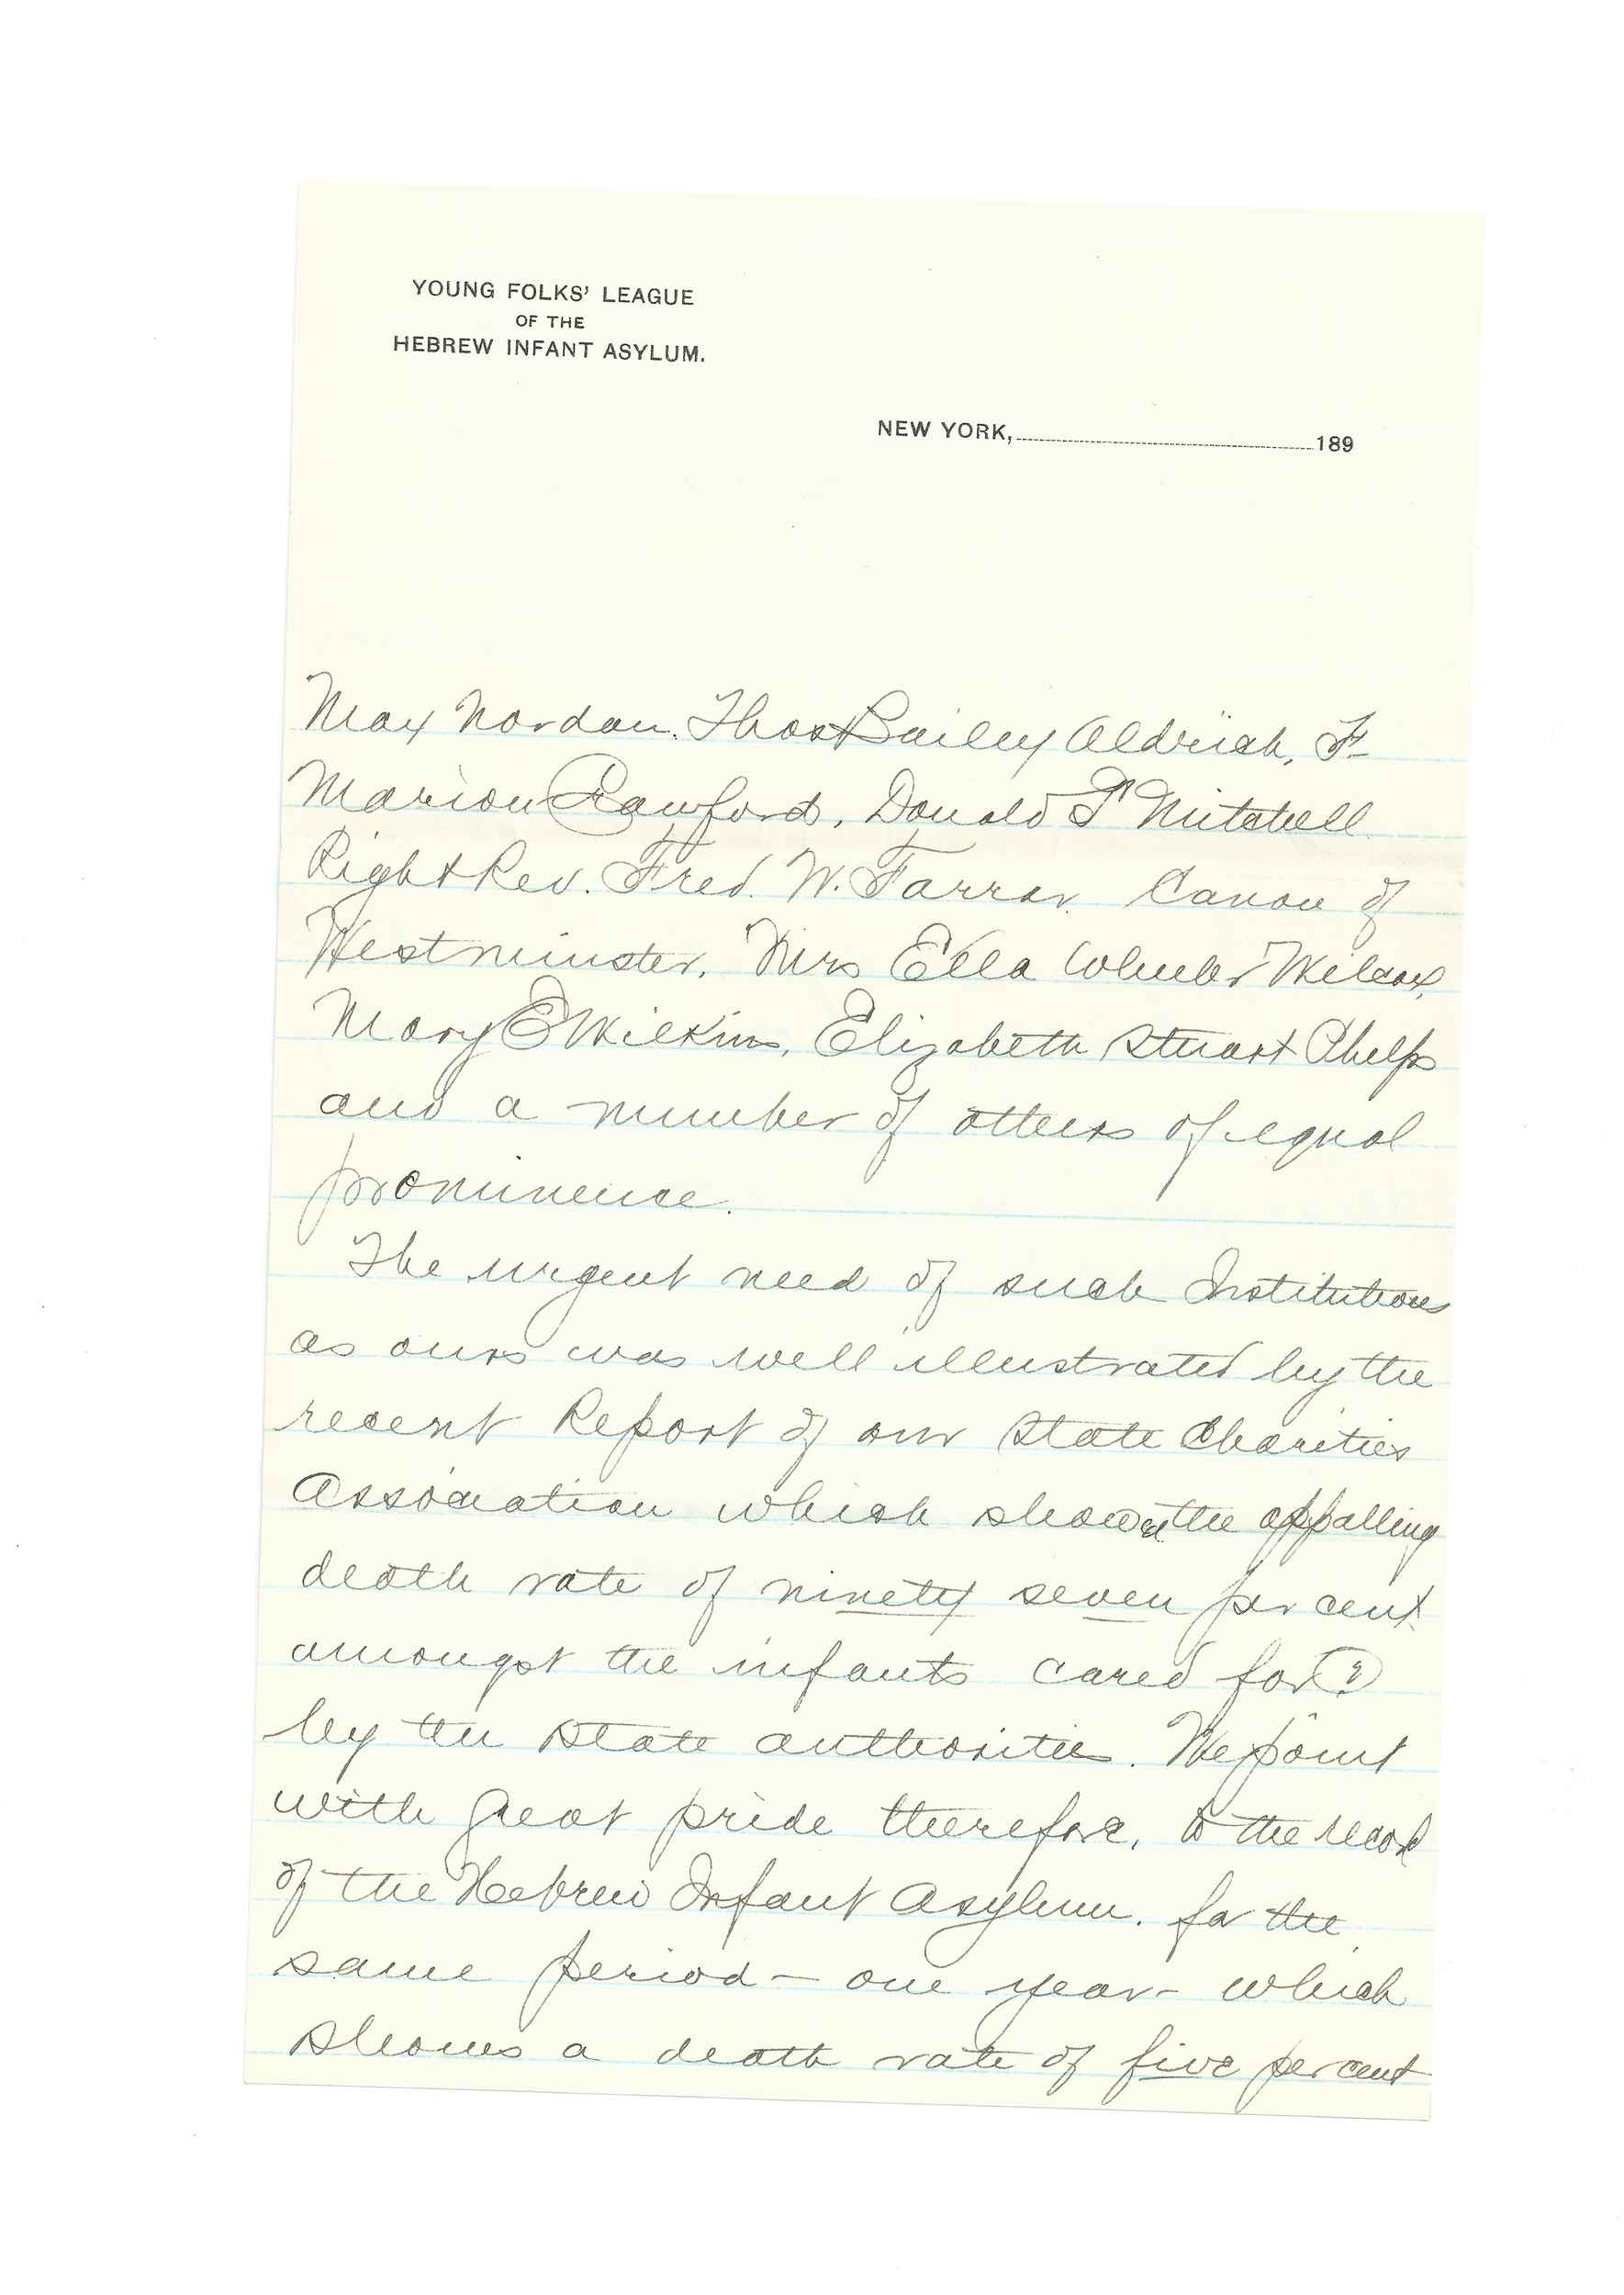 YOUNG FOLKS' LEAGUE
OF THE
HEBREW INFANT ASYLUM.
NEW YORK, 189
Max Nordau. Thos Bailey Aldrich, F.
Marion Crawford, Donald G Mitchell
Right Rev. Fred. W. Farrar. Canon of
Westminster. Mrs Ella Wheeler Wilcox,
Mary E Wilkins, Elizabeth Stuart Phelps
and a number of others of equal
prominence.
The urgent need of such Institutions
as ours was well illustrated by the
recent Report of our State Charities
Association which showed the appalling
death rate of ninety seven per cent
amongst the infants cared for (?)
by the State authorities. We point
with great pride therefore, to the record
of the Hebrew Infant Asylum. for the
same period - one year - which
shows a death rate of five per cent